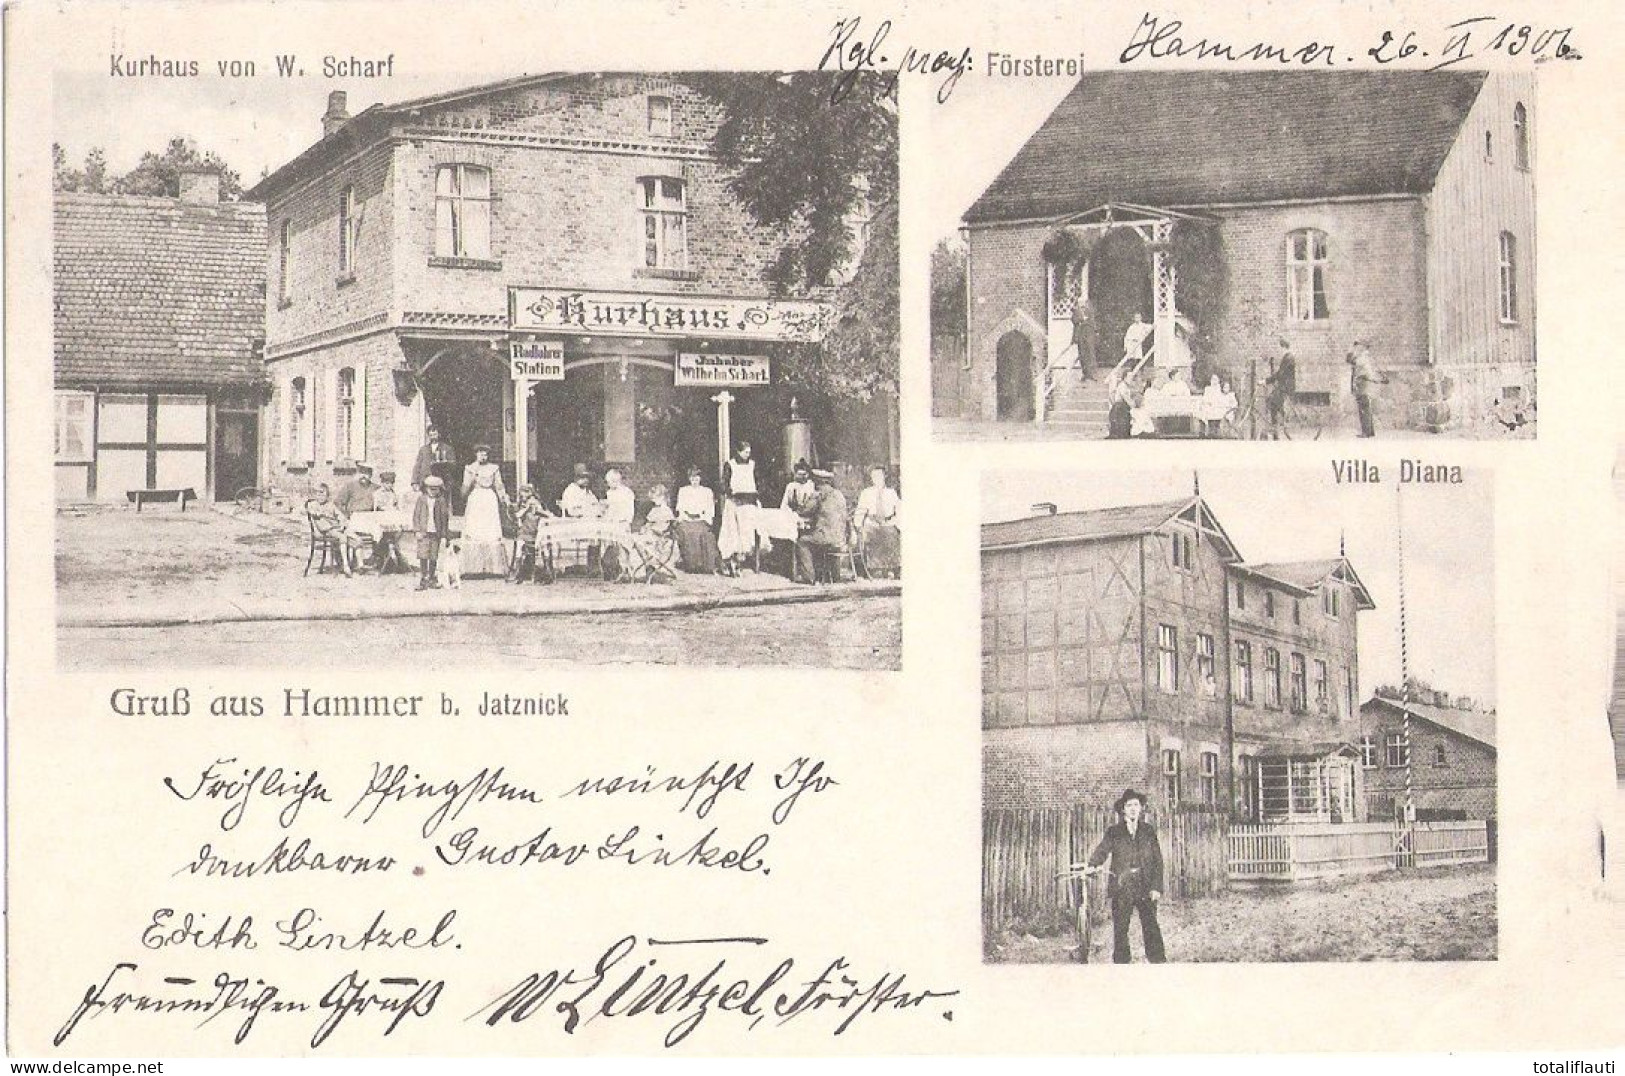 Kurhaus von W. Scharf
Kgl. preuß: Försterei
Hammer. 26. VI 1906
Kurhaus.
Radfahrer
Station
Inhaber
Wilhelm Scharf.
Villa Diana
Gruß aus Hammer b. Jatznick
Fröhliche Pfingsten wünscht Ihr
dankbarer Gustav Lintzel.
Edith Lintzel.
Freundlichen Gruß W Lintzel, Förster.
totaliflauti